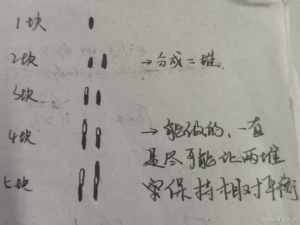 1块
2块 →分成二堆
3块
4块 →能伯的,一直
是尽可能让两堆
七块 保持相对平衡